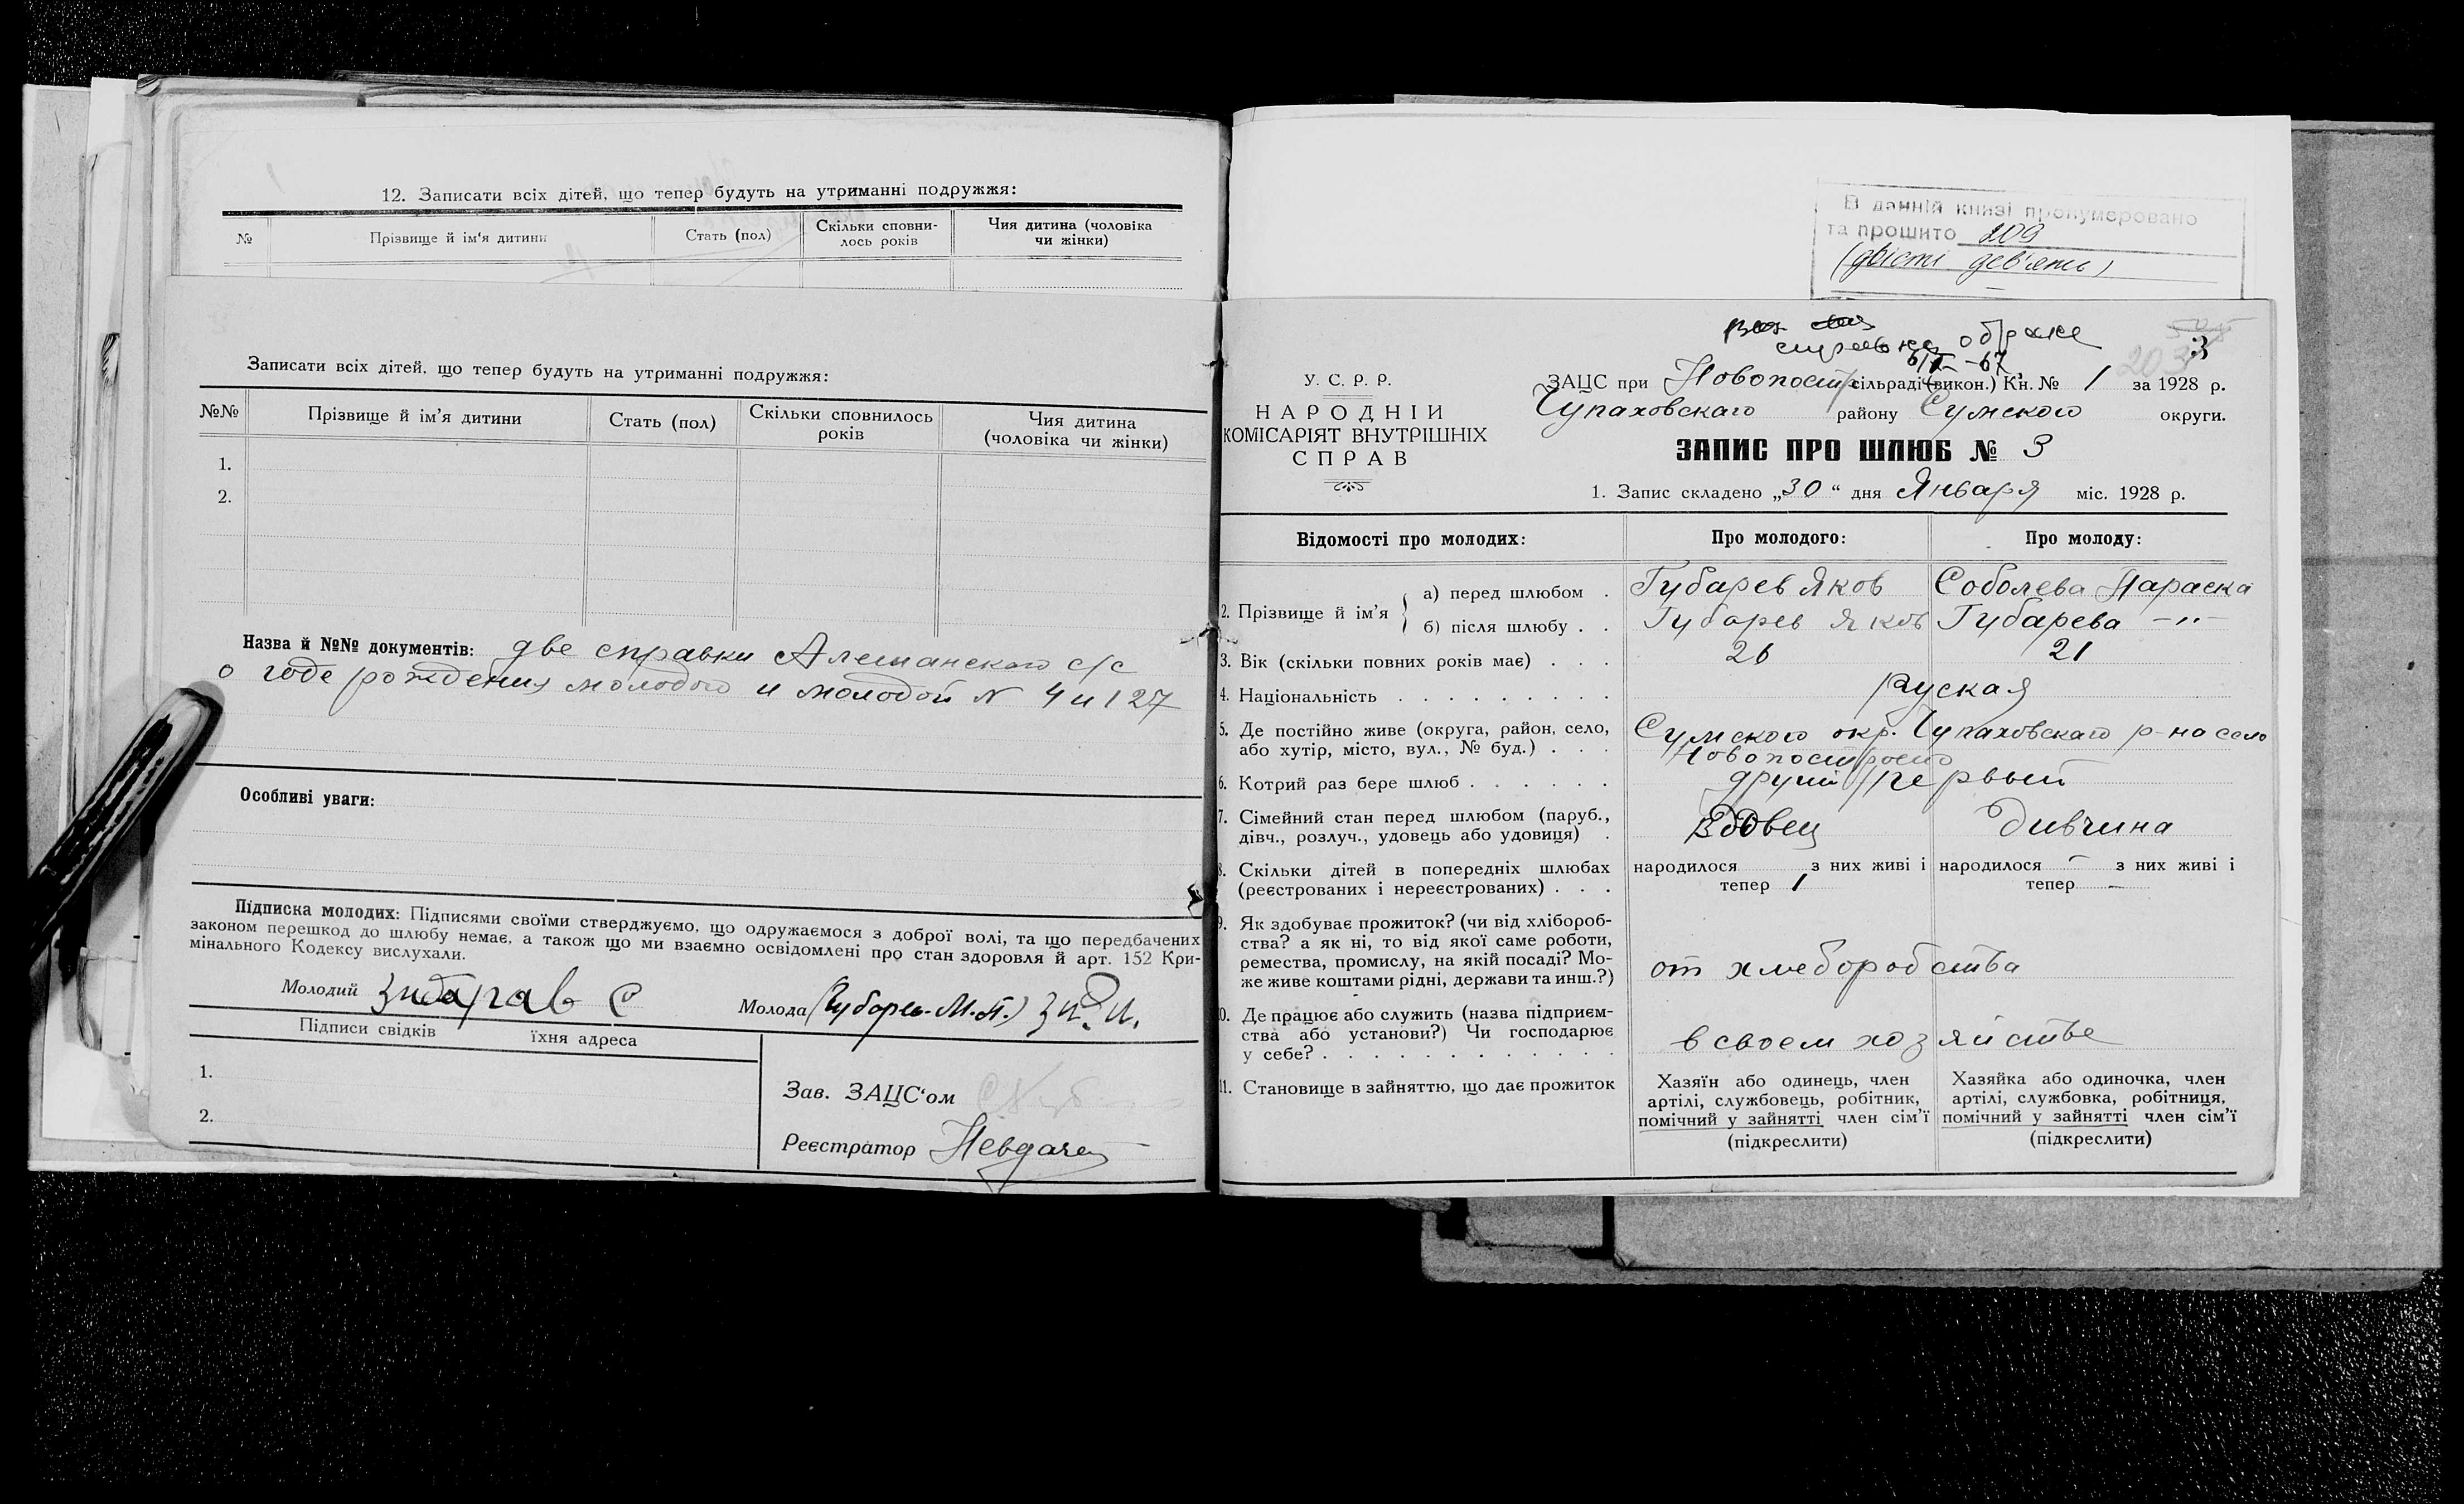 12. Записати всіх дітей, що тепер будуть на утриманні подружжя:
№ Прізвище й ім'я дитини Стать (пол) Скільки сповни-лось років Чия дитина (чоловіка чи жінки)
Записати всіх дітей, що тепер будуть на утриманні подружжя:
№№ Прізвище й ім'я дитини Стать (пол) Скільки сповнилось років Чия дитина (чоловіка чи жінки)
1.
2.
Назва й №№ документів: две справки Алешанского с/с
о годе рождения молодого и молодой N 4 и 127
Особливі уваги:
Підписка молодих: Підписями своїми стверджуємо, що одружаємося з доброї волі, та що передбачених
законом перешкод до шлюбу немає, а також що ми взаємно освідомлені про стан здоровля й арт. 152 Кри-
мінального Кодексу вислухали.
Молодий Молода (Губарев
Підписи свідків їхня адреса
1.
2.
Зав. ЗАЦС'ом
Реєстратор
В данній книзі пронумеровано
та прошито 209
(двісті дев'ять)
3
У. С. Р. Р.
НАРОДНІЙ
КОМІСАРІЯТ ВНУТРІШНІХ
СПРАВ
ЗАЦС при Новопостр сільраді (викон.) Кн. № 1 за 1928 р.
Чупаховскаго району Сумского округи.
ЗАПИС ПРО ШЛЮБ № 3
1. Запис складено „30" дня Января міс. 1928 р.
Відомості про молодих: Про молодого: Про молоду:
2. Прізвище й ім'я
а) перед шлюбом . Губарев Яков Соболева Параска
б) після шлюбу . . Губарев Яков Губарева –„–
3. Вік (скільки повних років має) . . . 26 21
4. Національність . . . . . . . . . руская
5. Де постійно живе (округа, район, село,
або хутір, місто, вул., № буд.) . . . Сумского окр. Чупаховскаго р-на село
Новопостроено
6. Котрий раз бере шлюб . . . . . . другий первый
7. Сімейний стан перед шлюбом (паруб.,
дівч., розлуч., удовець або удовиця) . Вдовец Дивчина
8. Скільки дітей в попередніх шлюбах
(реєстрованих і нереєстрованих) . . .
народилося з них живі і тепер 1
народилося – з них живі і тепер –
9. Як здобуває прожиток? (чи від хлібороб-
ства? а як ні, то від якої саме роботи,
ремества, промислу, на якій посаді? Мо-
же живе коштами рідні, держави та инш.?)
от хлеборобства
10. Де працює або служить (назва підприєм-
ства або установи?) Чи господарює
у себе? . . . . . . . . . . . .
в своем хозяйстве
11. Становище в зайняттю, що дає прожиток
Хазяїн або одинець, член
артілі, службовець, робітник,
помічний у зайнятті член сім'ї
(підкреслити)
Хазяйка або одиночка, член
артілі, службовка, робітниця,
помічний у зайнятті член сім'ї
(підкреслити)